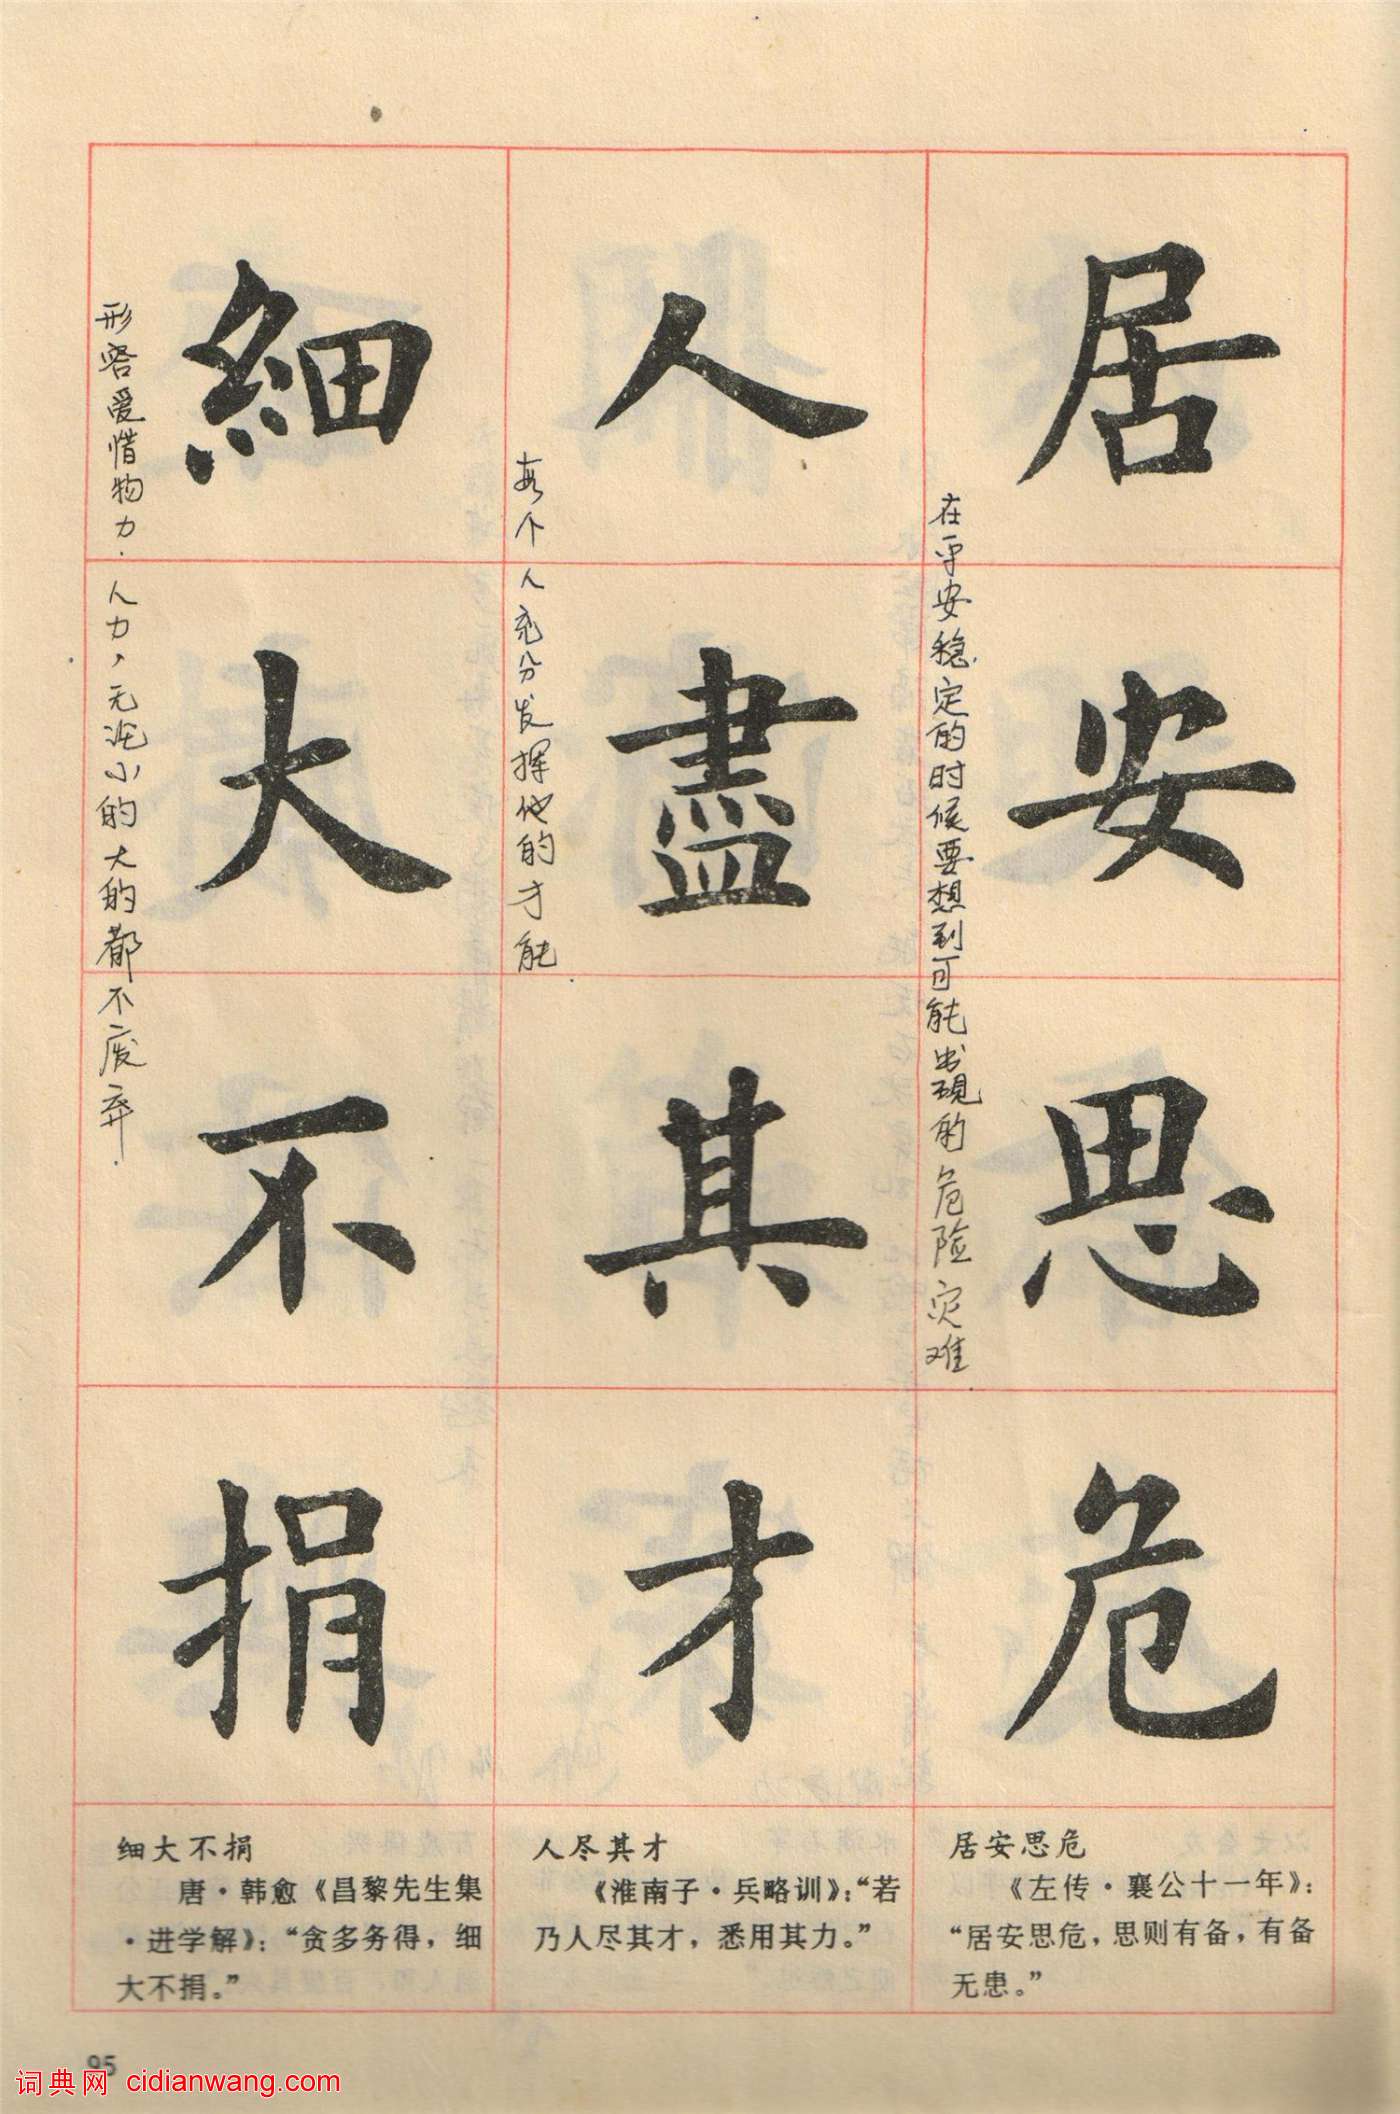 居安思危
在平安稳定的时候要想到可能出现的危险灾难
人盡其才
每个人充分发挥他的才能
細大不捐
形容爱惜物力.人力,无论小的大的都不废弃.
居安思危
《左传·襄公十一年》：
“居安思危，思则有备，有备
无患。”
人尽其才
《淮南子·兵略训》：“若
乃人尽其才，悉用其力。”
细大不捐
唐·韩愈《昌黎先生集
·进学解》：“贪多务得，细
大不捐。”
95
词典网 cidianwang.com